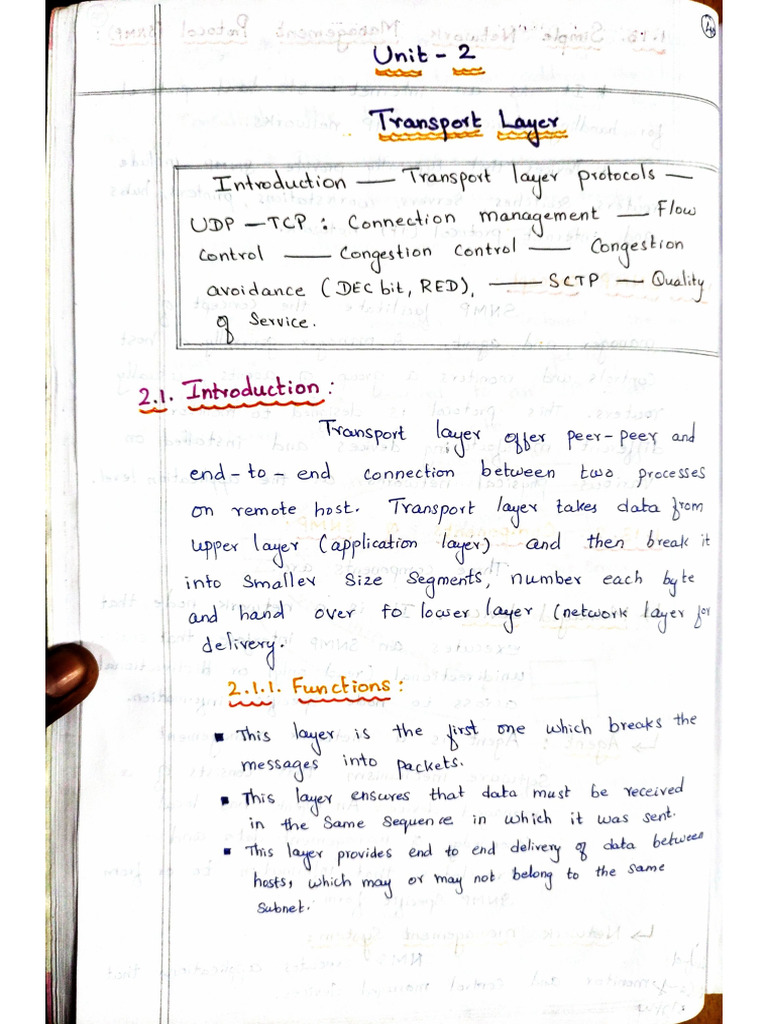 Unit - 2
Transport Layer
Introduction — Transport layer protocols —
UDP — TCP : Connection management — Flow
control — Congestion control — Congestion
avoidance (DEC bit, RED), — SCTP — Quality
of Service.
2.1. Introduction :
Transport layer offer peer-peer and
end-to-end connection between two processes
on remote host. Transport layer takes data from
upper layer (application layer) and then break it
into smaller size segments, number each byte
and hand over to lower layer (network layer for
delivery.
2.1.1. Functions :
▪ This layer is the first one which breaks the
messages into packets.
▪ This layer ensures that data must be received
in the same sequence in which it was sent.
▪ This layer provides end to end delivery of data between
hosts, which may or may not belong to the same
subnet.